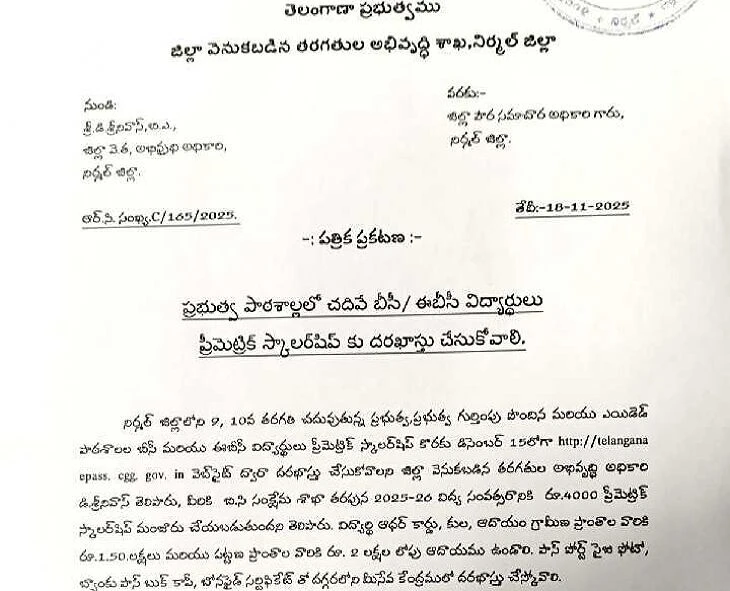 తెలంగాణా ప్రభుత్వము
జిల్లా వెనుకబడిన తరగతుల అభివృద్ధి శాఖ,నిర్మల్ జిల్లా
నుండి:
శ్రీ.డి.శ్రీనివాస్,బి.ఎ.,
జిల్లా వె.త, అభివృధి అధికారి,
నిర్మల్ జిల్లా.
వరకు:-
జిల్లా పౌర సమాచార అధికారి గారు,
నిర్మల్ జిల్లా.
ఆర్.సి.సంఖ్య.C/165/2025.
తేదీ:-18-11-2025
-: పత్రిక ప్రకటణ :-
ప్రభుత్వ పాఠశాల్లలో చదివే బీసీ/ ఈబీసీ విద్యార్థులు
ప్రీమెట్రిక్ స్కాలర్‌షిప్ కు దరఖాస్తు చేసుకోవాలి.
నిర్మల్ జిల్లాలోని 9, 10వ తరగతి చదువుతున్న ప్రభుత్వ,ప్రభుత్వ గుర్తింపు పొందిన మరియు ఎయిడెడ్
పాఠశాలల బీసీ మరియు ఈబీసీ విద్యార్థులు ప్రీమెట్రిక్ స్కాలర్‌షిప్ కొరకు డిసెంబర్ 15లోగా http://telangana
epass. cgg. gov. in వెబ్‌సైట్ ద్వారా దరఖాస్తు చేసుకోవాలని జిల్లా వెనుకబడిన తరగతుల అభివృద్ధి అధికారి
డి.శ్రీనివాస్ తెలిపారు, వీరికి బి.సి సంక్షేమ శాఖా తరపున 2025-26 విద్య సంవత్సరానికి రూ.4000 ప్రీమెట్రిక్
స్కాలర్‌షిప్ మంజూరు చేయబడుతుందని తెలిపారు. విద్యార్థి ఆధర్ కార్డు, కుల, ఆదాయం గ్రామీణ ప్రాంతాల వారికి
రూ.1.50.లక్షలు మరియు పట్టణ ప్రాంతాల వారికి రూ. 2 లక్షల లోపు ఆదాయము ఉండాలి. పాస్ పోర్ట్ సైజు ఫోటో,
బ్యాంకు పాస్ బుక్ కాపీ, బోనఫైడ్ సర్టిఫికేట్ తో దగ్గరలోని మీసేవ కేంద్రములో దరఖాస్తు చేస్కోవాలి.
నిర్మల్